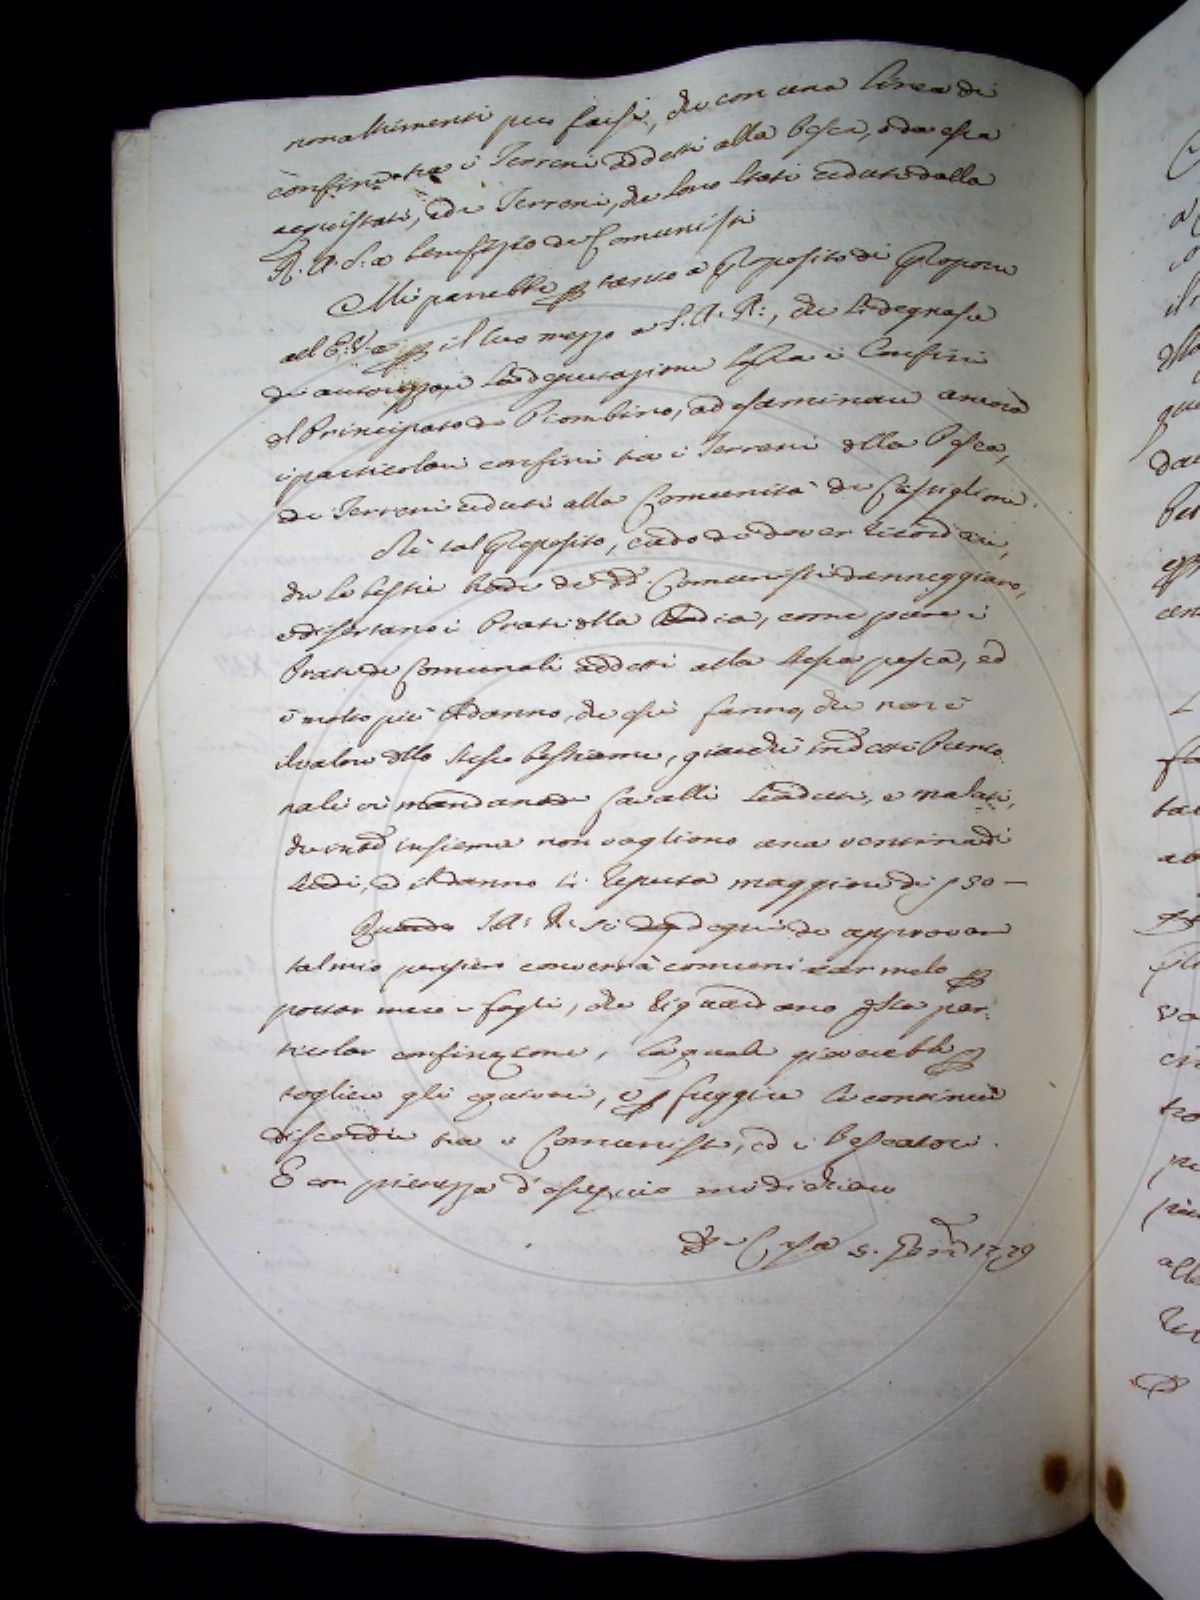 non altrimenti può farsi, che con una linea di
confinaz.ne tra i Terreni addetti alla Pesca, o da essa
acquistati, ed i Terreni, che sono stati ceduti dalla
R. A. S. a benefizio de Comunisti
Mi parrebbe p tanto a proposito di proporre
all' E. V. a p il suo mezzo a S. A. R., che si degnasse
di autorizzare la deputazione sopra i Confini
del Principato di Piombino, ad esaminare ancora
i particolari confini tra i Terreni della Pesca,
e de Terreni ceduti alla Comunità di Castiglione.
A tal proposito, credo di dover ricordare,
che le bestie rode de dd. Comunisti danneggiano,
e disertano i Prati della Badia, come pure i
Prati de Comunali addetti alla stessa pesca, ed
è molto più il danno, che essi fanno, che non è
il valore dello stesso bestiame, giacchè in detti Pra
vi mandano Cavalli scaduti, e malati,
che tutti insieme non vagliono una ventina di
scudi, e il danno si reputa maggiore di 250 —
Quando S. A. R. si degni di approvare
tal mio pensiero converrà comunicarmelo p
portar meco i fogli, che riguardano q.sta par
ticolar confinazione, la quale gioverebbe p
togliere gli equivoci, e p fuggire le continue
discordie tra i Comunisti, ed i Pescatori.
E con pienezza d'ossequio mi dichiaro
Di Casa 5. 1779